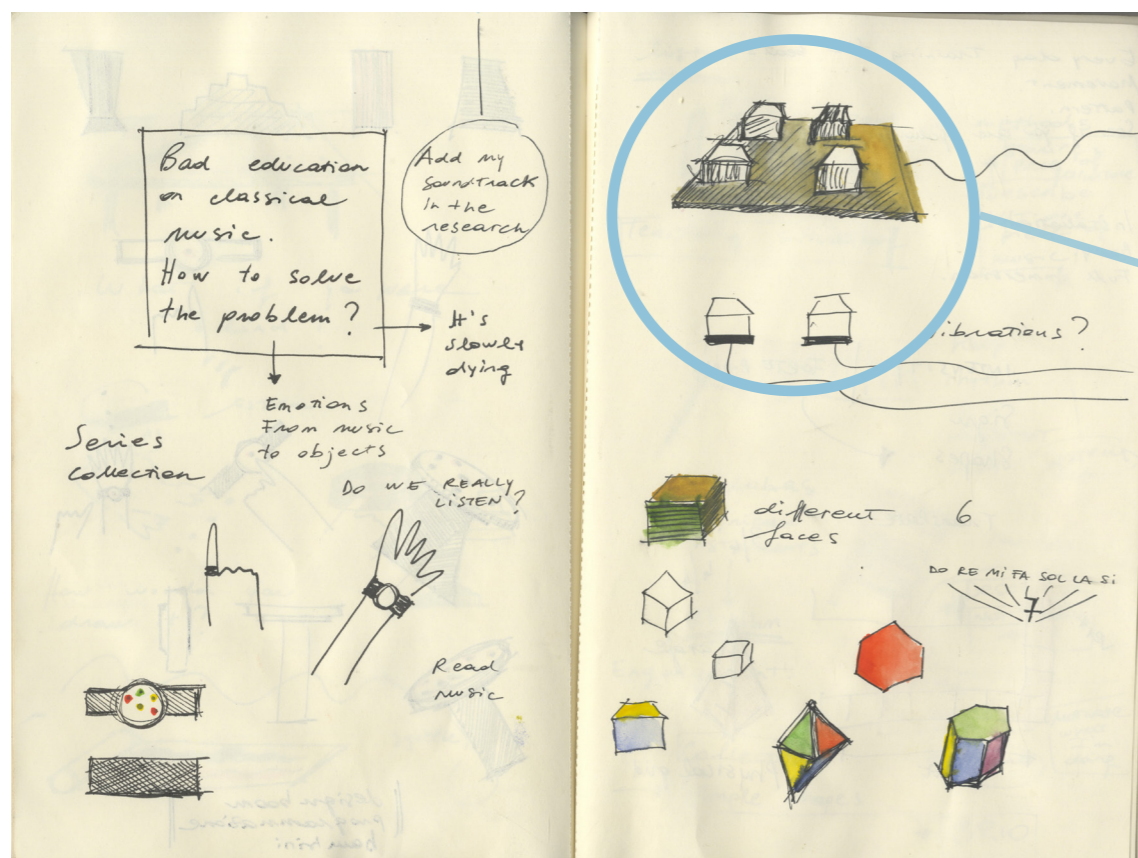 Bad education
on classical
music.
How to solve
the problem?
Add my
soundtrack
In the
research
It's
slowly
dying
Emotions
From music
to objects
Series
collection
DO WE REALLY
LISTEN?
Read
music
ibrations?
different
faces
6
DO RE MI FA SOL LA SI
7